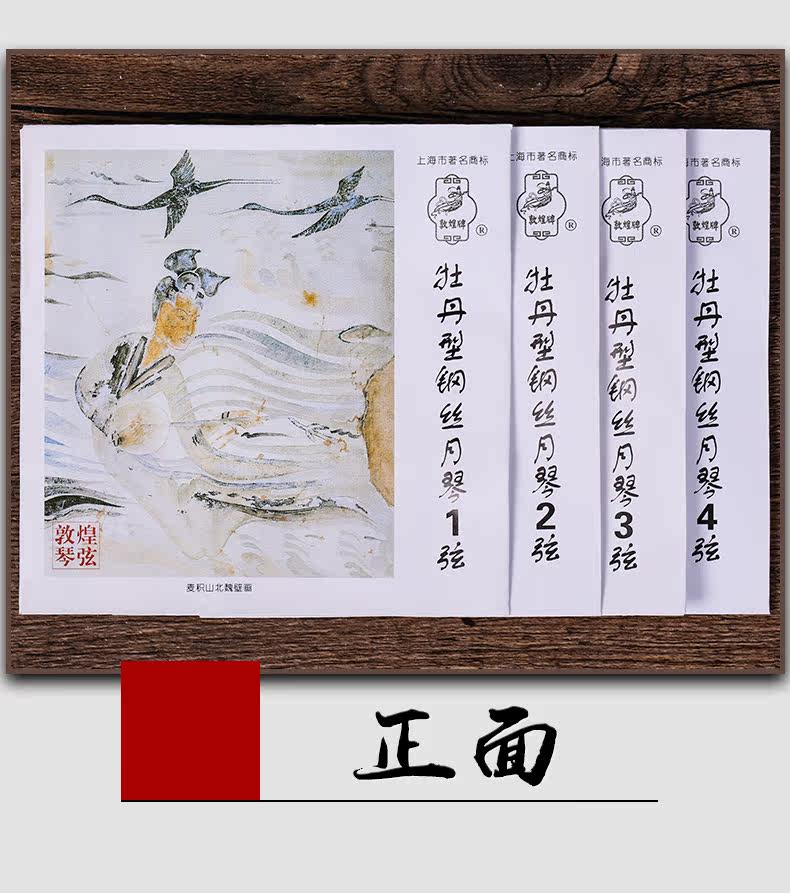 上海市著名商标
敦煌牌
®
牡丹型钢丝月琴1弦
敦煌
琴弦
麦积山北魏壁画
上海市著名商标
敦煌牌
®
牡丹型钢丝月琴2弦
海市著名商标
敦煌牌
®
牡丹型钢丝月琴3弦
市著名商标
敦煌牌
®
牡丹型钢丝月琴4弦
正面